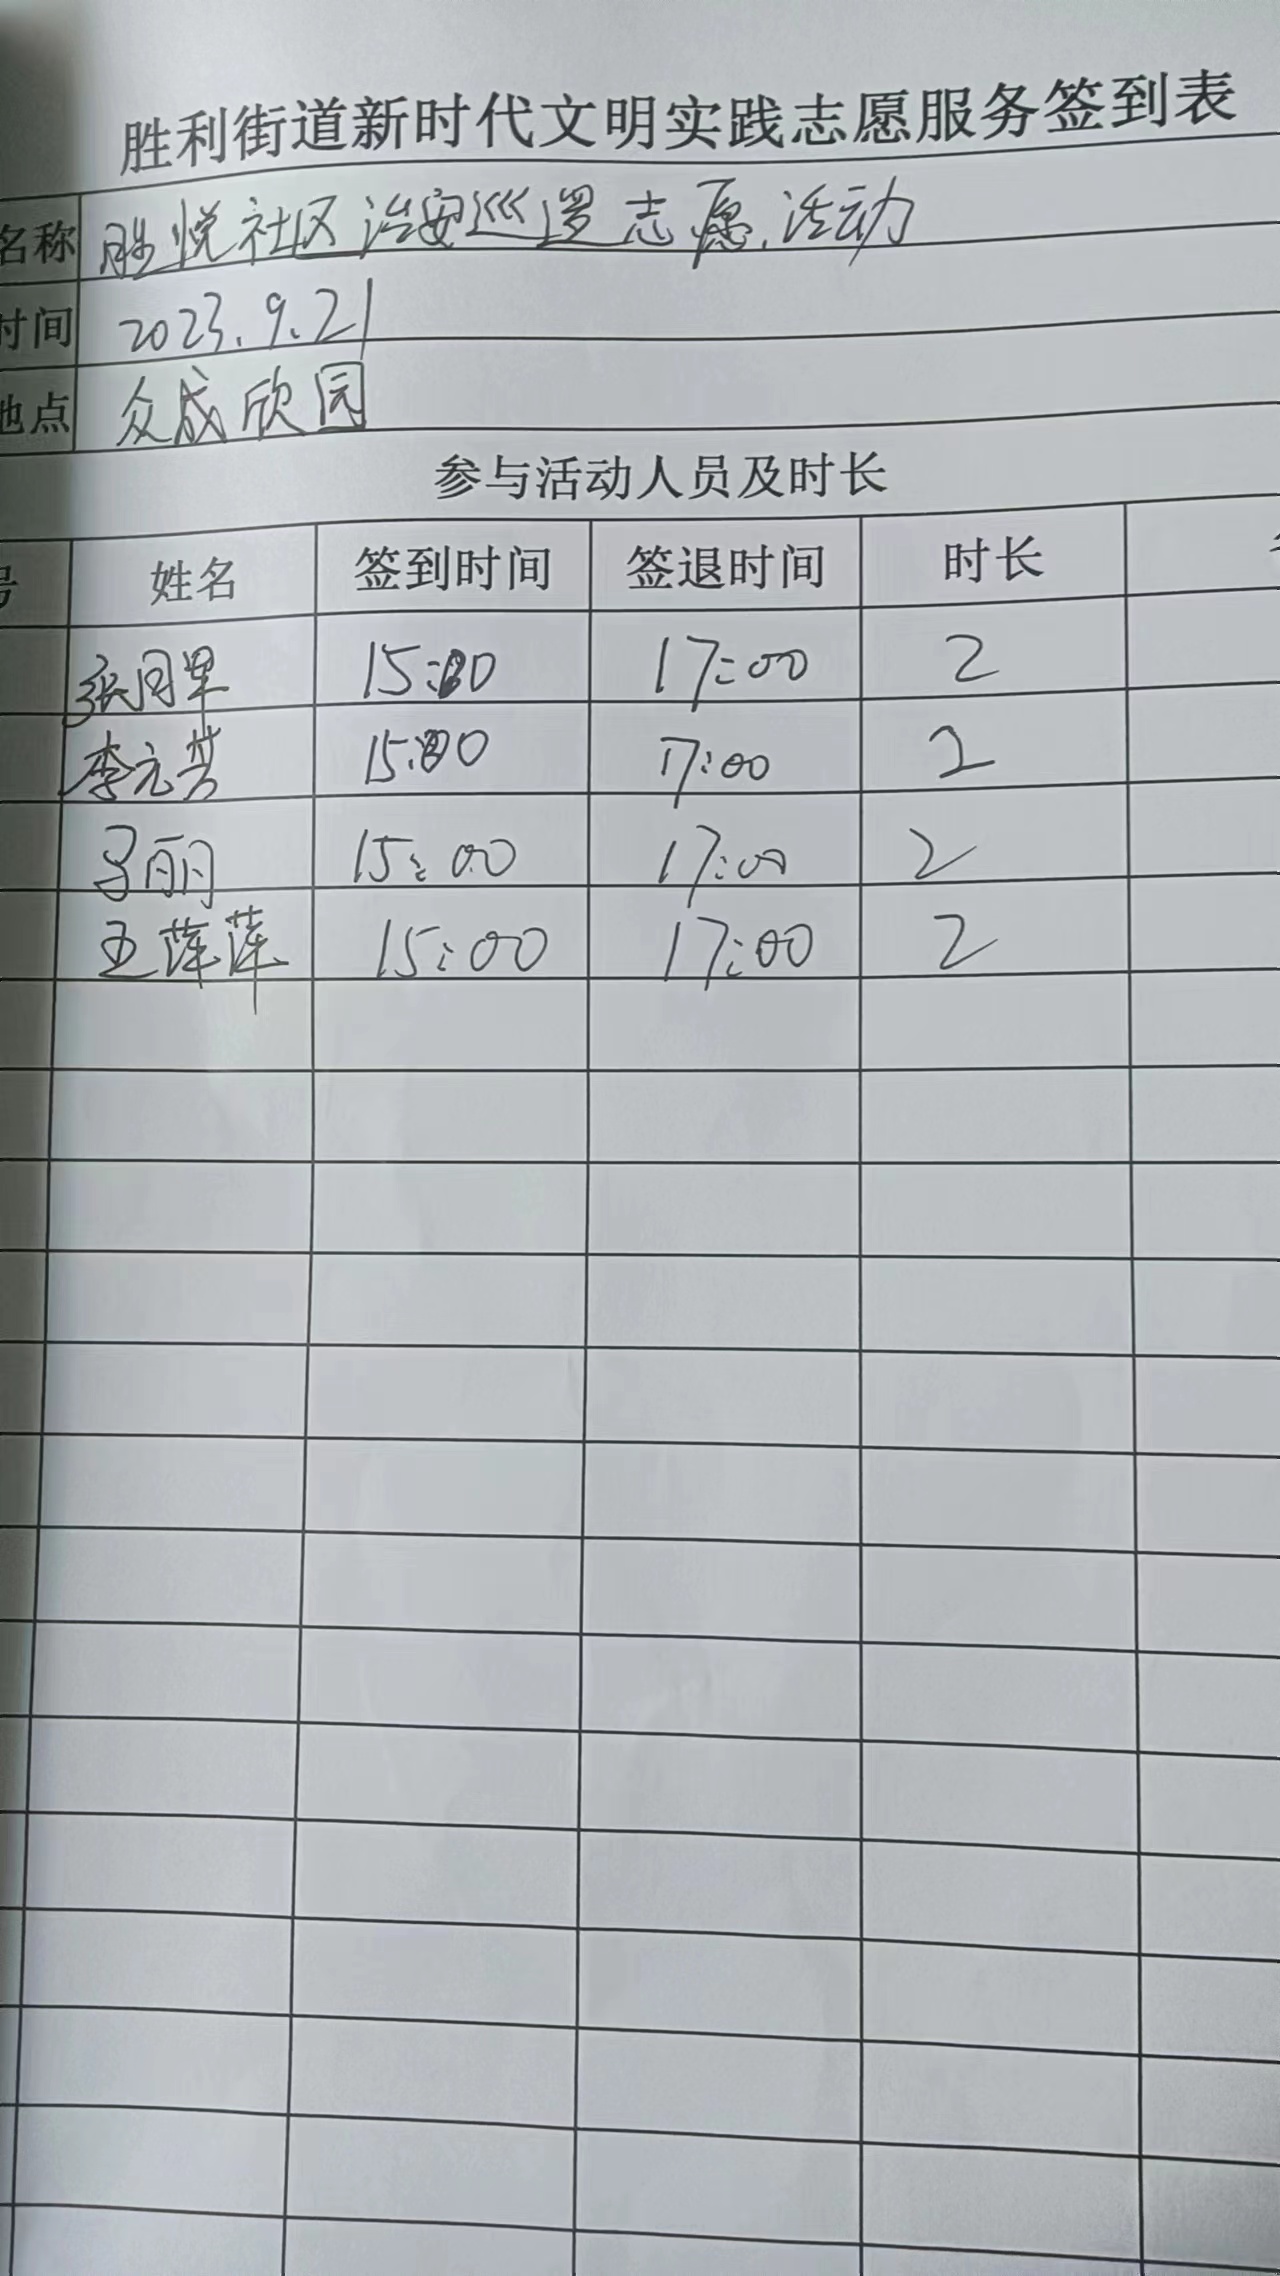 胜利街道新时代文明实践志愿服务签到表
名称 胜悦社区治安巡逻志愿活动
时间 2023.9.21
地点 众成欣园
参与活动人员及时长
号 姓名 签到时间 签退时间 时长
15:00 17:00 2
李元芳 15:00 17:00 2
马丽 15:00 17:00 2
王萍萍 15:00 17:00 2